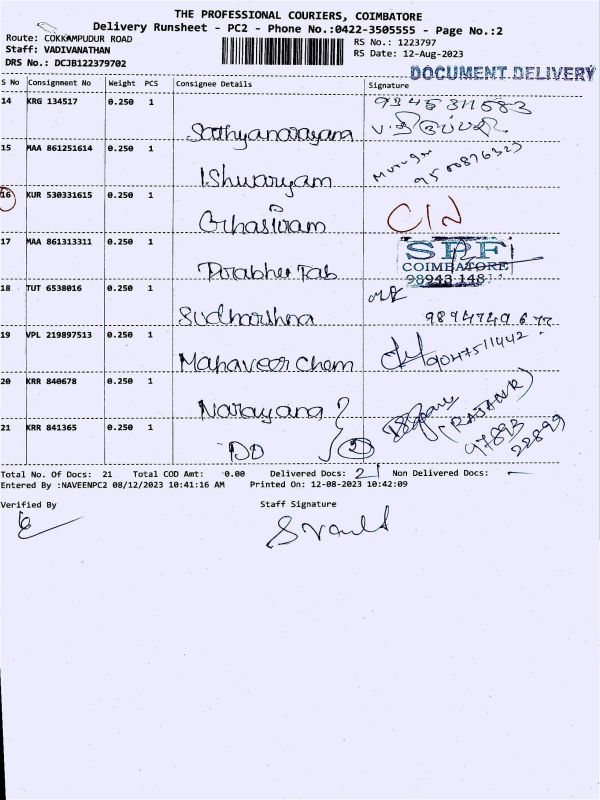 THE PROFESSIONAL COURIERS, COIMBATORE
Delivery Runsheet - PC2 - Phone No.:0422-3505555 - Page No.:2
Route: COKKAMPUDUR ROAD
RS No.: 1223797
Staff: VADIVANATHAN
RS Date: 12-Aug-2023
DRS No.: DCJB122379702
DOCUMENT DELIVERY
S No Consignment No Weight PCS Consignee Details Signature
14 KRG 134517 0.250 1
Sathyanarayana
15 MAA 861251614 0.250 1
Ishwaryam
Murugan
16 KUR 530331615 0.250 1
CIN
17 MAA 861313311 0.250 1
SPF
COIMBATORE
18 TUT 6538016 0.250 1
Sudharshna
19 VPL 219897513 0.250 1
Mahaveer Chem
9047511442
20 KRR 840678 0.250 1
Narayana
(RAJAN R)
97893
22899
21 KRR 841365 0.250 1
DD
2
Total No. Of Docs: 21 Total COD Amt: 0.00 Delivered Docs: 21 Non Delivered Docs: -
Entered By :NAVEENPC2 08/12/2023 10:41:16 AM Printed On: 12-08-2023 10:42:09
Verified By Staff Signature